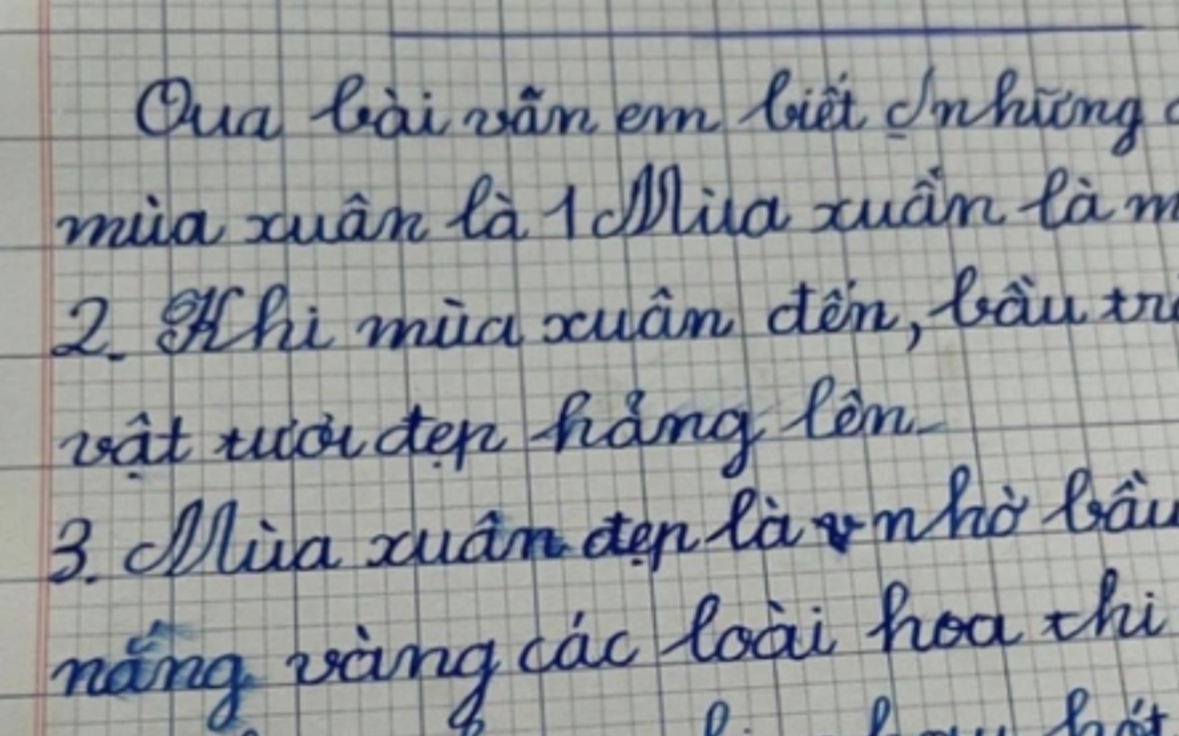 Qua bài văn em biết những
mùa xuân là 1 Mùa xuân là m
2. Khi mùa xuân đến, bầu trờ
vật tươi đẹp hẳng lên
3. Mùa xuân đẹp là nhờ bầu
nắng vàng các loài hoa thi
hót